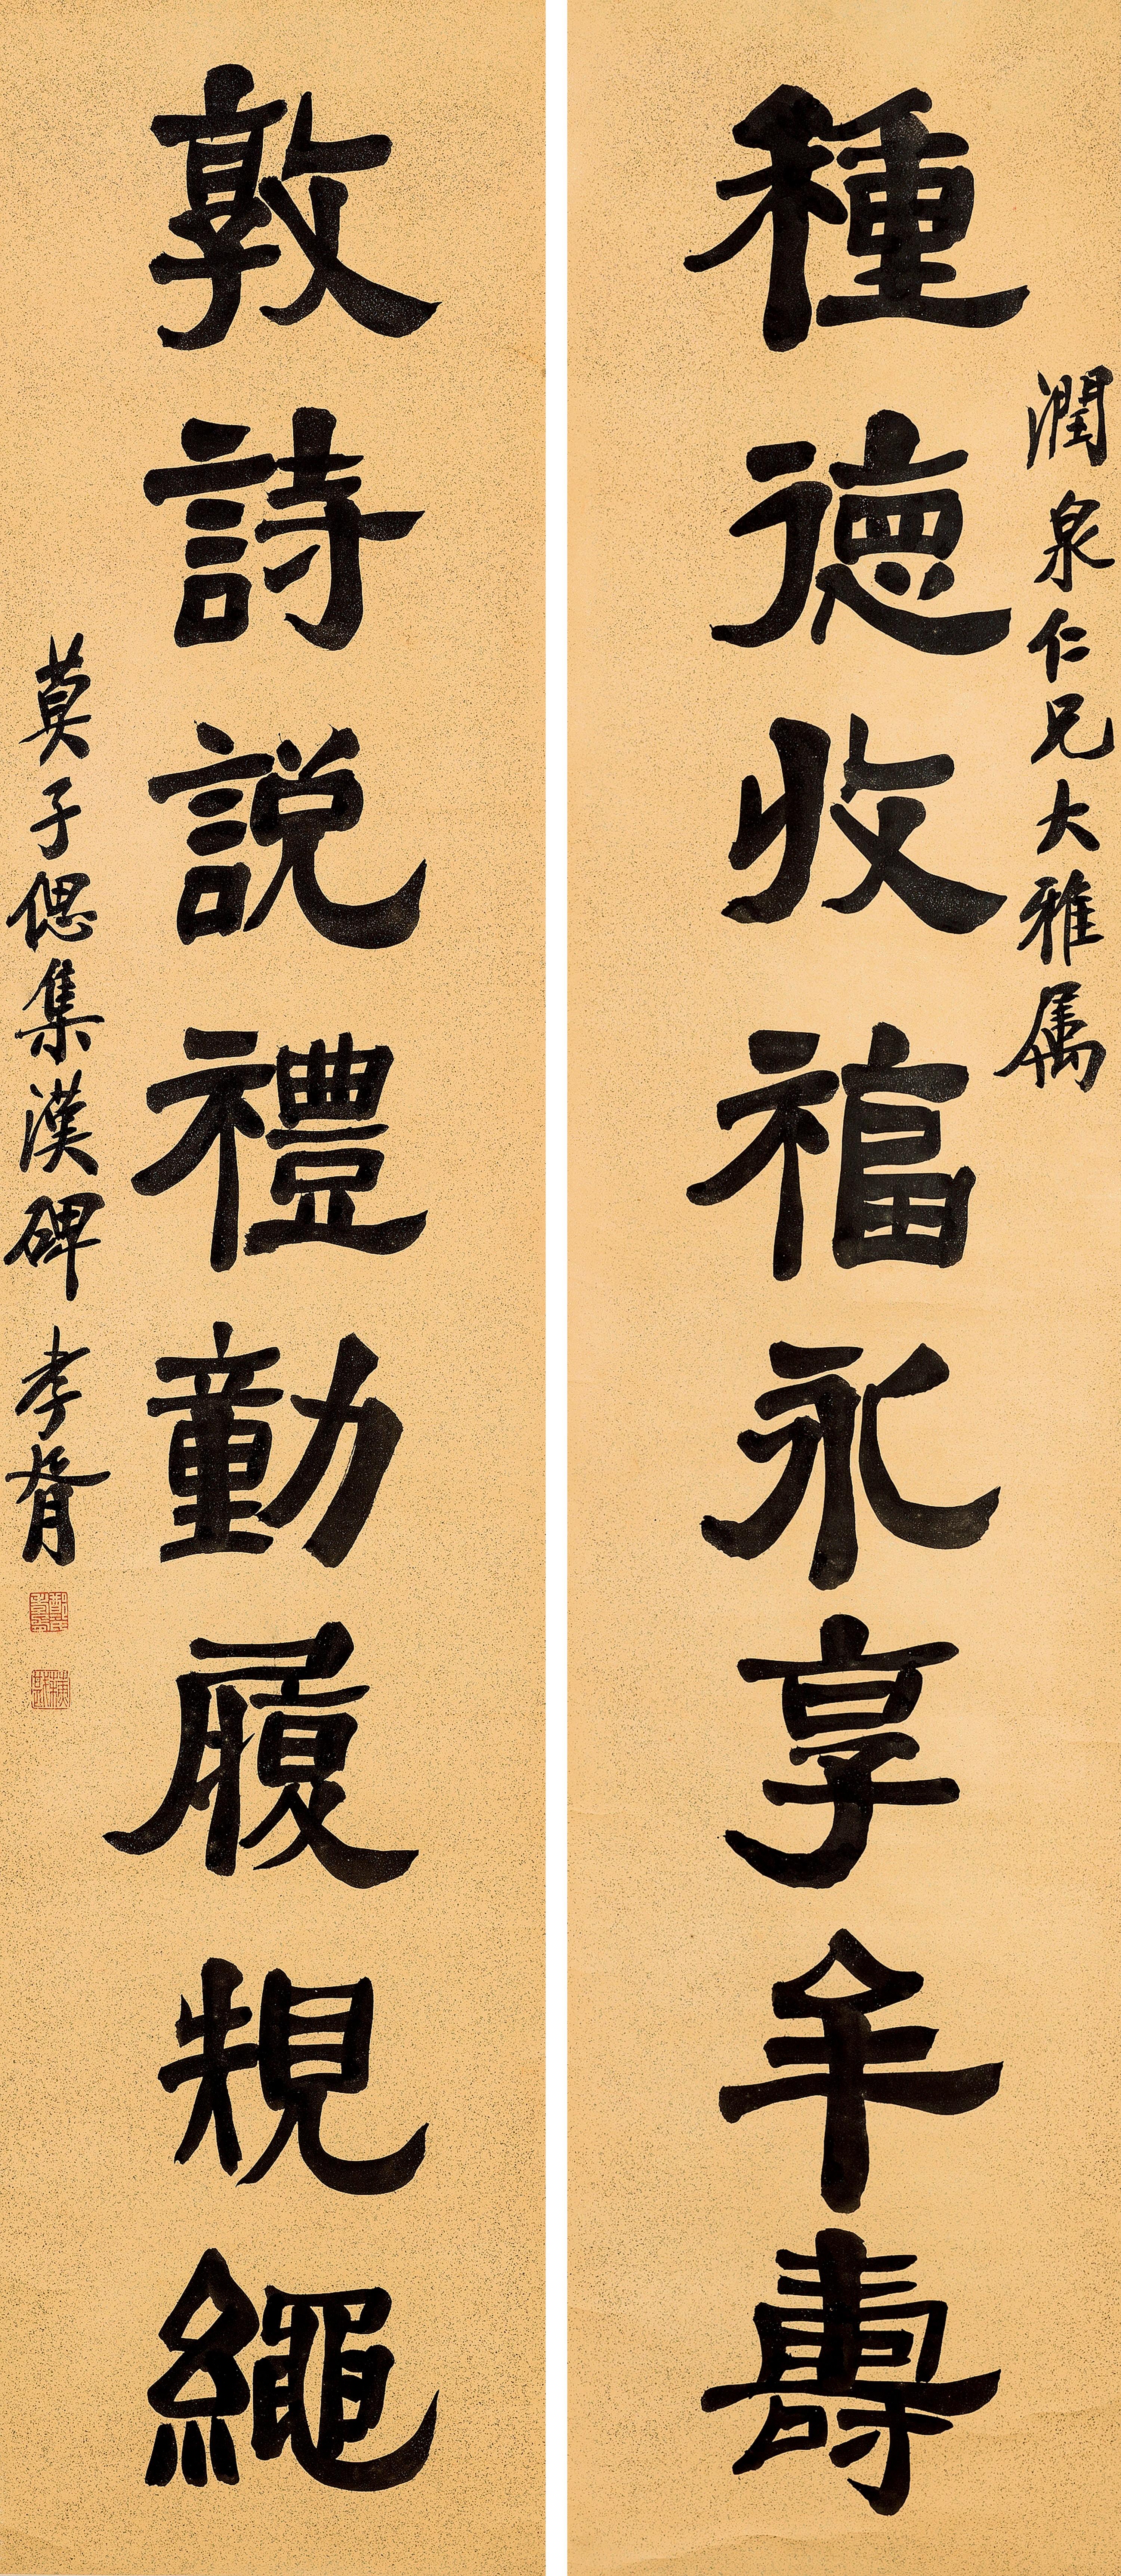 種德收福永享年壽
潤泉仁兄大雅属
敦詩說禮動履規繩
莫子偲集漢碑 孝胥